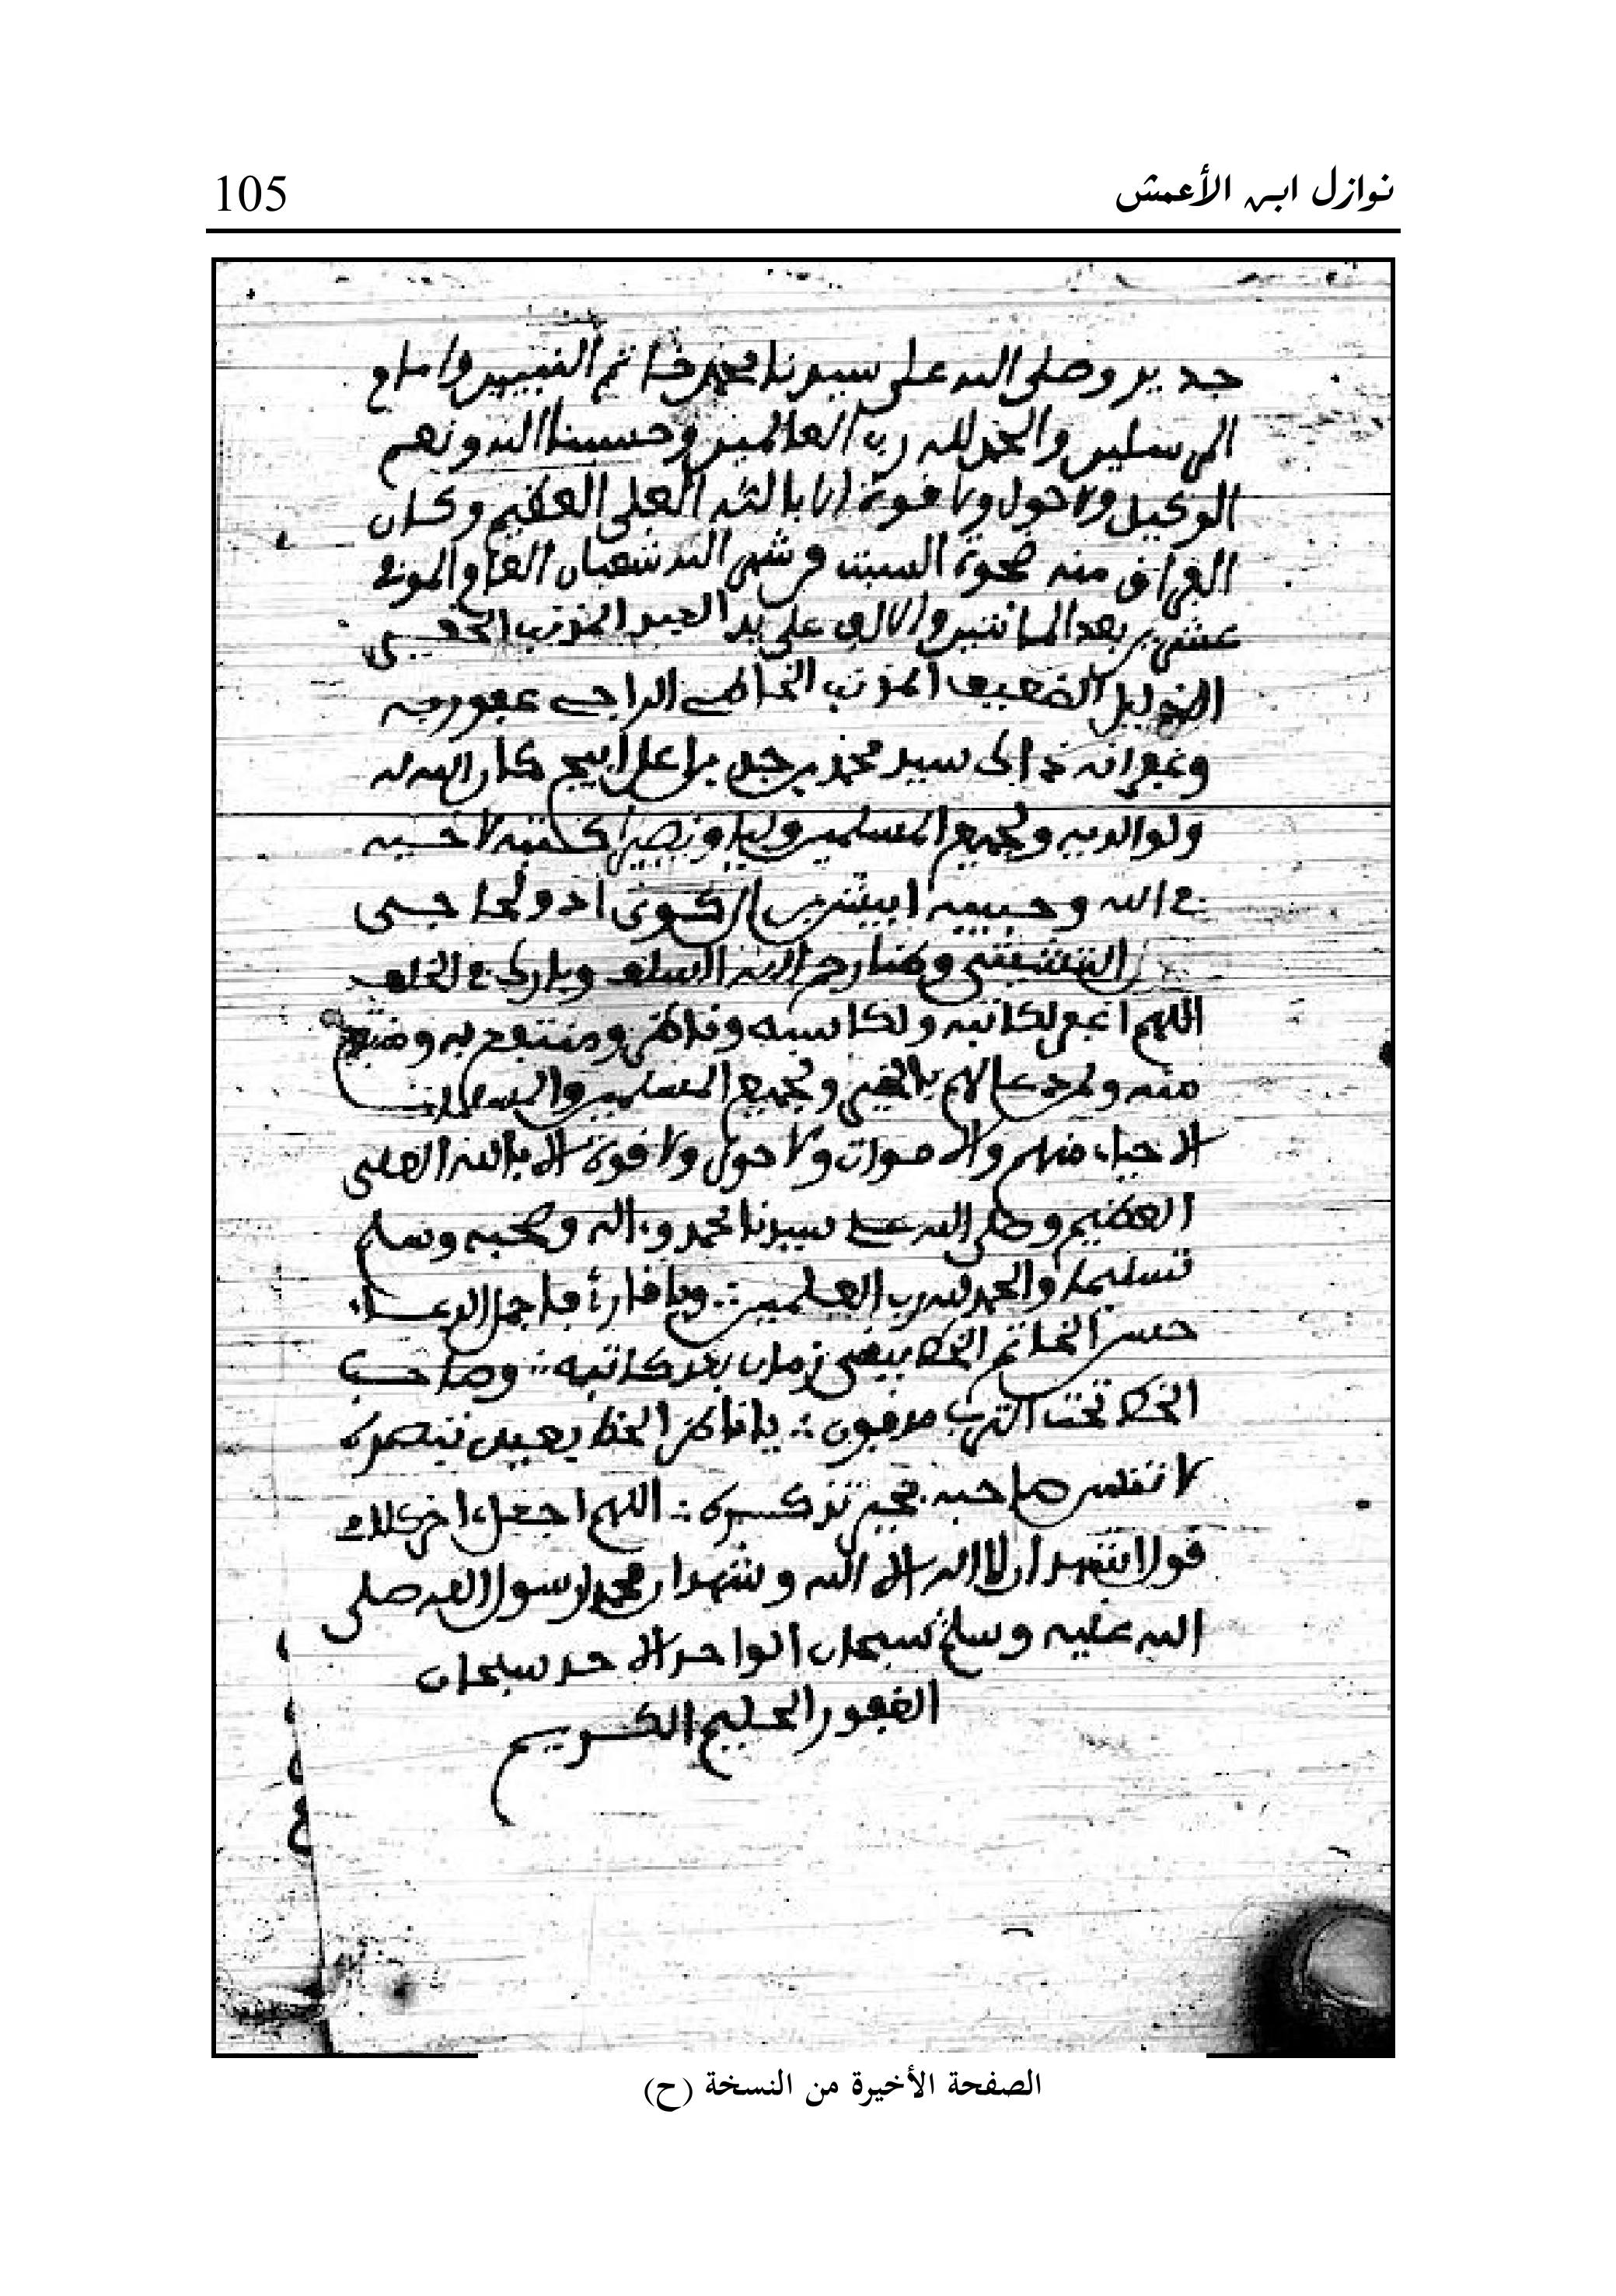 نوازل ابن الأعمش
105
جدير وصلى الله على سيدنا محمد خاتم النبيين وإمام
المرسلين والحمد لله رب العالمين وحسبنا الله ونعم
الوكيل ولا حول ولا قوة إلا بالله العلي العظيم وكان
الفراغ منه ضحوة السبت في شهر الله شعبان العام الموفي
عشرين بعد المائتين والألف على يد العبد المذنب
الذليل الضعيف المذنب الخاطئ الراجي عفو ربه
وغفرانه سيد محمد بن كان الله له
ولوالديه ولجميع المسلمين وليا ونصيرا كتبته لأخيه
في الله وحبيبه
رحم الله السلف وبارك في الخلف
اللهم اغفر لكاتبه ولكاسبه وناظر ومنتفع به
منه ولمن دعا لهم بالخير ولجميع المسلمين والمسلمات
الاحياء منهم والاموات ولا حول ولا قوة الا بالله العلي
العظيم وصلى الله على سيدنا محمد وءاله وصحبه وسلم
تسليما والحمد لله رب العلمين ∴ ويا قارئا اجل الدعاء
حسن الخاتم الخط يبقى زمان بعد كاتبه ∴ وصاحب
الخط تحت الترب مدفون ∴ يا ناظر الخط بعين تبصره
لا تنس صاحبه بخير تذكره ∴ اللهم اجعل ءاخر كلامه
قول اشهد ان لا اله الا الله واشهد ان محمدا رسول الله صلى
الله عليه وسلم سبحان الواحد الاحد سبحان
الغفور الحليم الكريم
الصفحة الأخيرة من النسخة (ح)